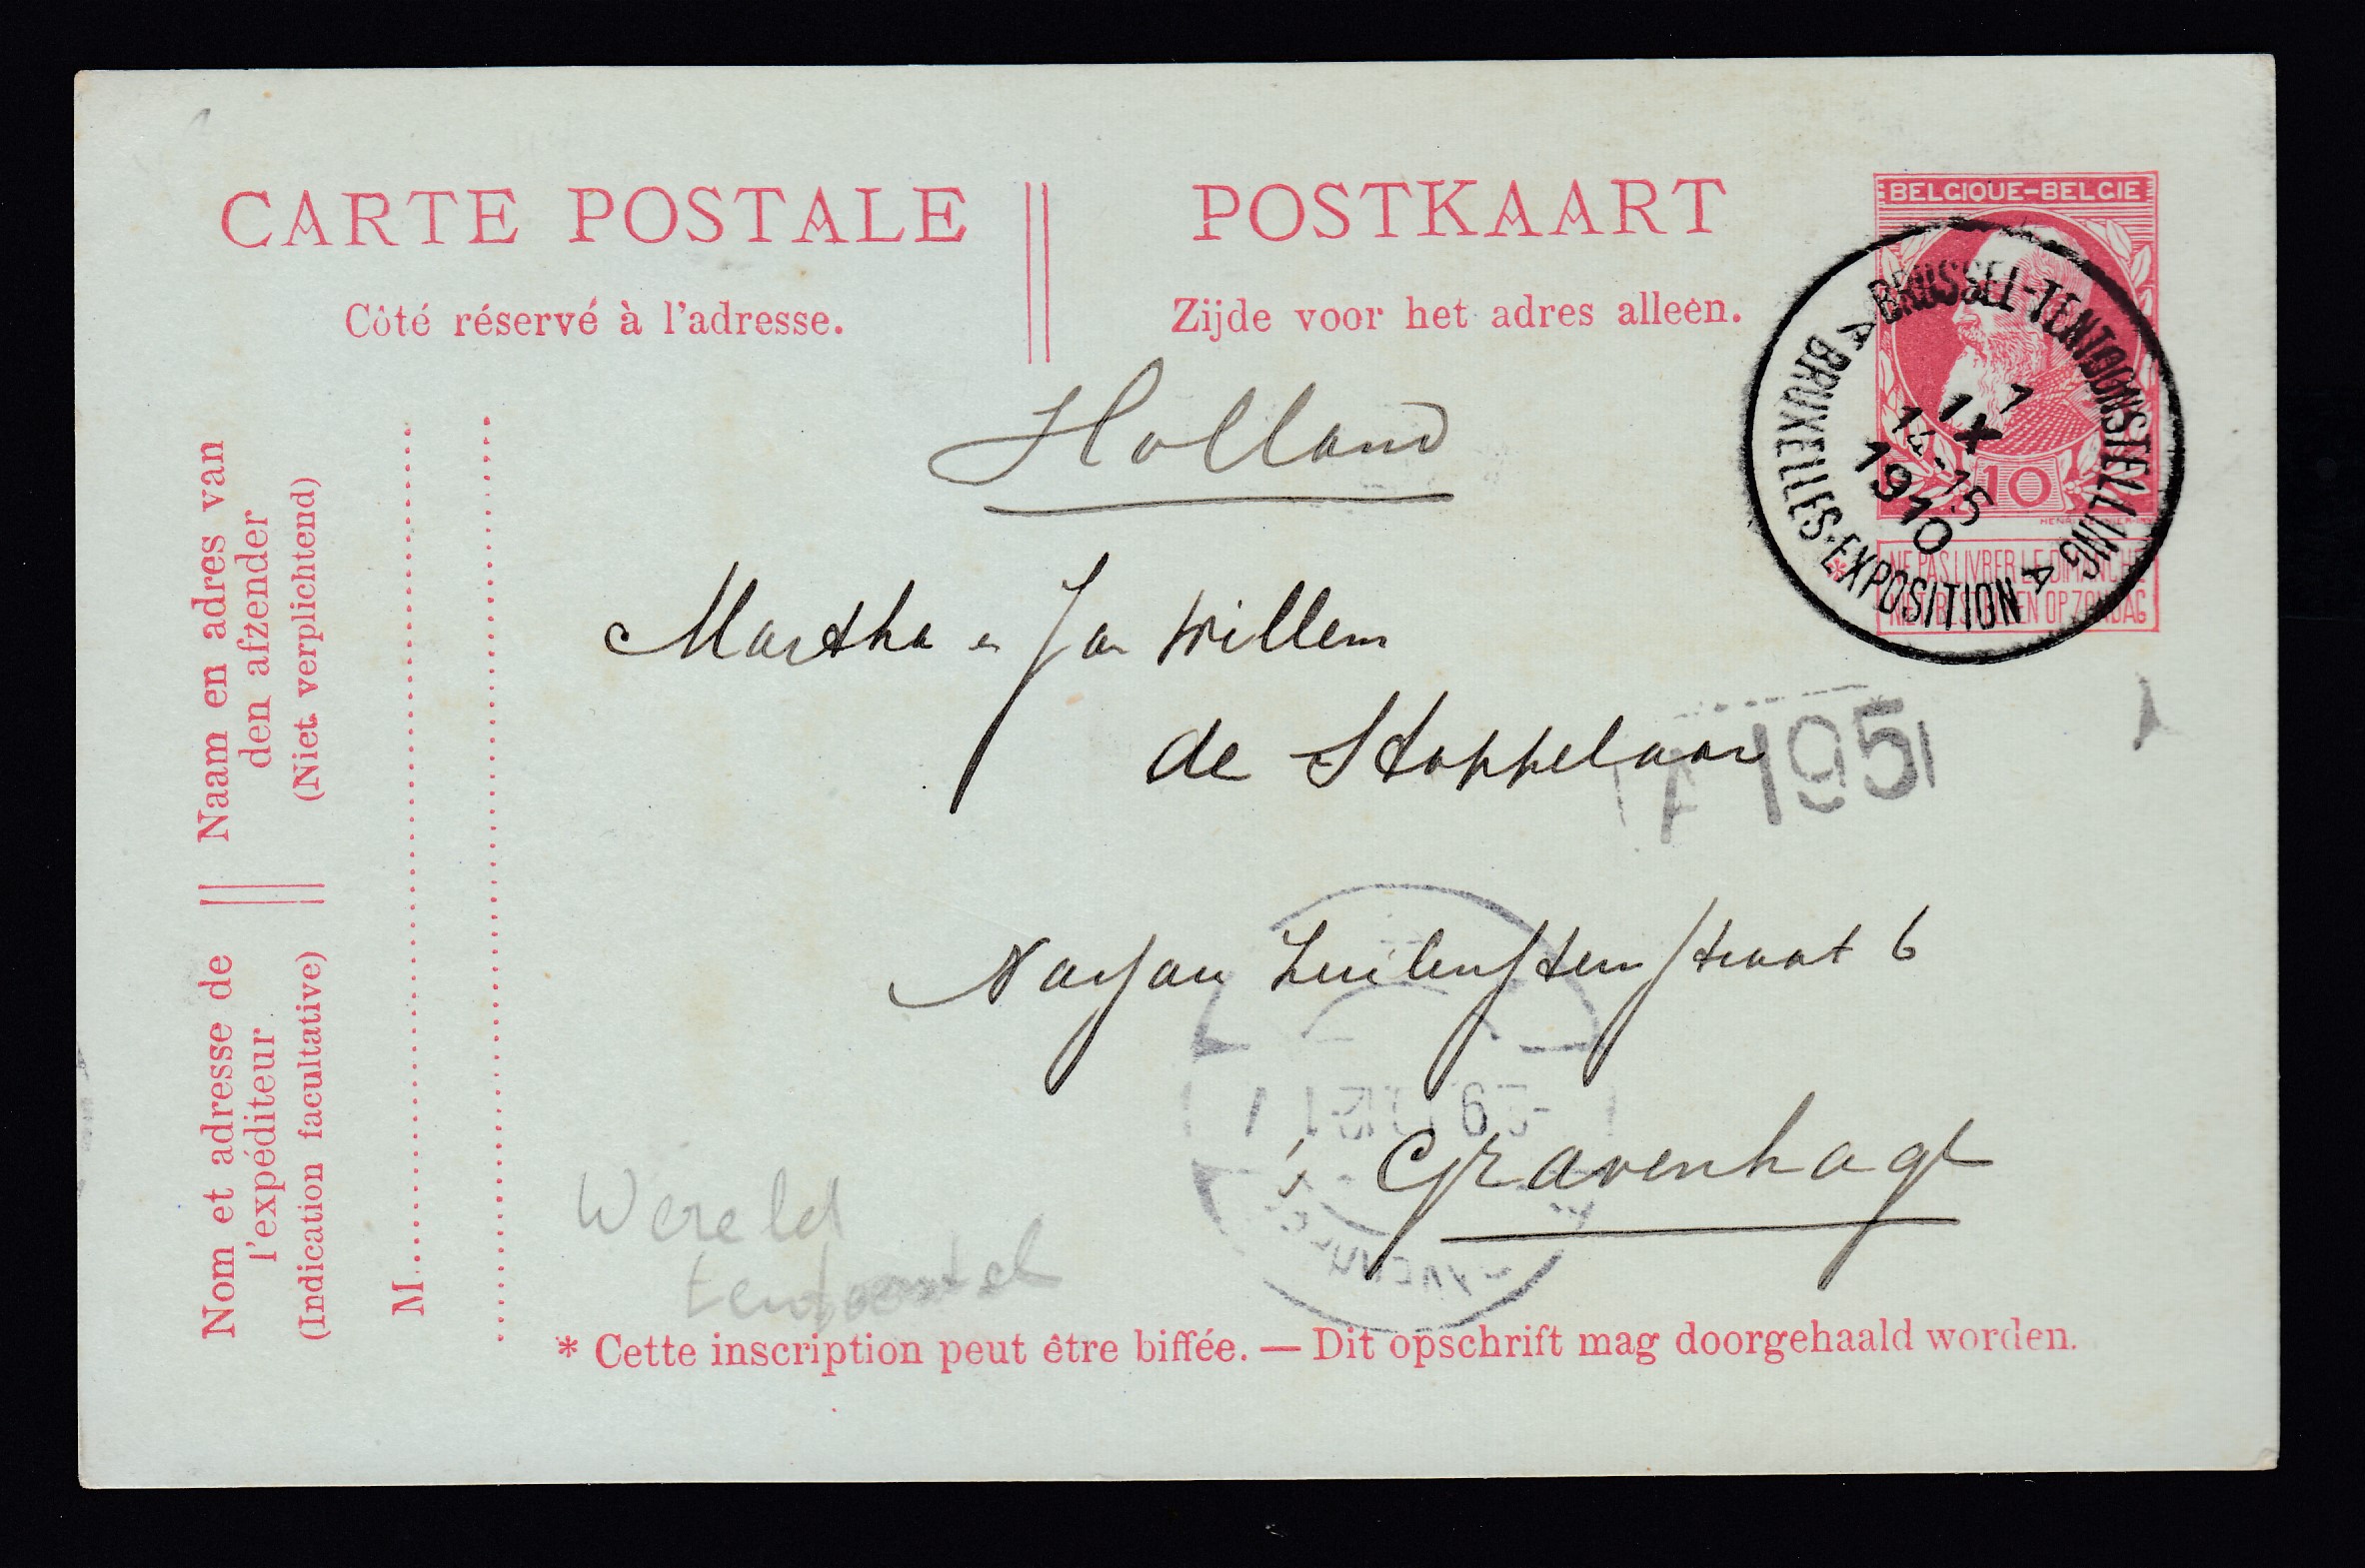 CARTE POSTALE
POSTKAART
Côté réservé à l'adresse.
Zijde voor het adres alleen.
BELGIQUE-BELGIE
10
NE PAS LIVRER LE DIMANCHE
NIET BESTELLEN OP ZONDAG
BRUSSEL-TENTOONSTELLING
A BRUXELLES-EXPOSITION A
1
IX
14-15
1910
Holland
Martha en Jan Willem
de Stoppelaar
195
Nassau Zuilensteinstraat 6
's Gravenhage
Wereld
* Cette inscription peut être biffée. — Dit opschrift mag doorgehaald worden.
Naam en adres van
den afzender
(Niet verplichtend)
Nom et adresse de
l'expéditeur
(Indication facultative)
M